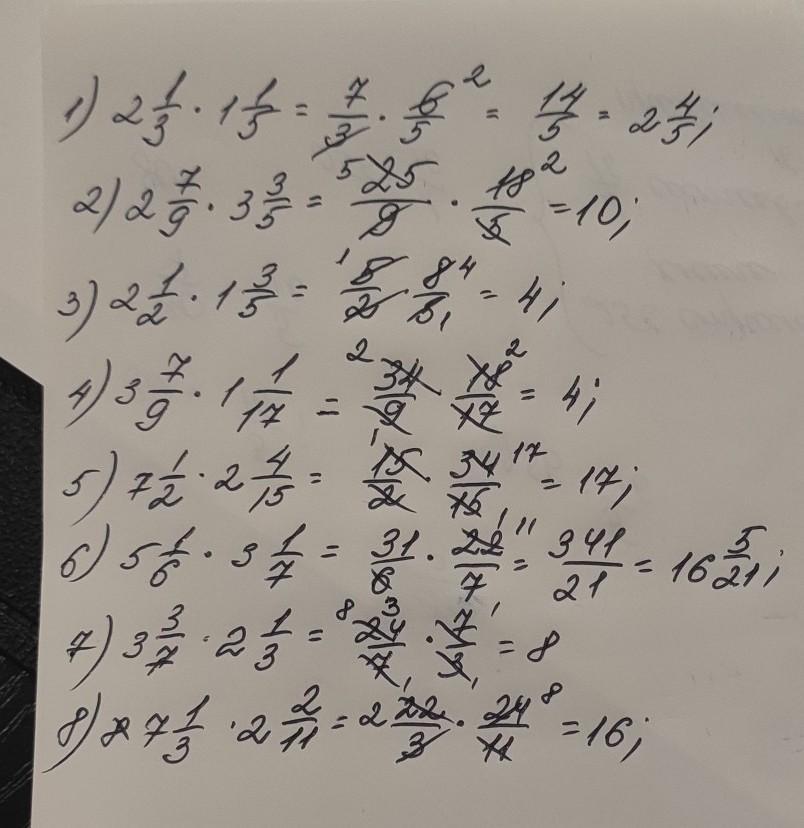 1) 2 1/3 · 1 1/5 = 7/3 · 6/5 2 = 14/5 = 2 4/5;
2) 2 7/9 · 3 3/5 = 5 25/9 · 18/5 2 = 10;
3) 2 1/2 · 1 3/5 = 1 5/2 · 8/5 4 1 = 4;
4) 3 7/9 · 1 1/17 = 2 34/9 · 18/17 2 = 4;
5) 7 1/2 · 2 4/15 = 1 15/2 · 34/15 17 1 = 17;
6) 5 1/6 · 3 1/7 = 31/6 · 22/7 11 = 341/21 = 16 5/21;
7) 3 3/7 · 2 1/3 = 8 24/7 1 · 7/3 1 1 = 8
8) 7 1/3 · 2 2/11 = 2 22/3 · 24/11 8 = 16;